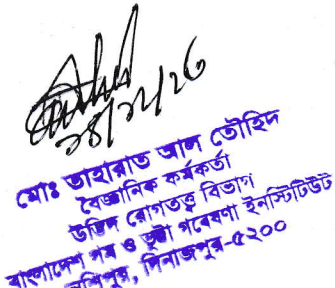 ২৪/১২/২৩
মোঃ তাহারাত আল তৌহিদ
বৈজ্ঞানিক কর্মকর্তা
উদ্ভিদ রোগতত্ত্ব বিভাগ
বাংলাদেশ গম ও ভুট্টা গবেষণা ইনস্টিটিউট
নশিপুর, দিনাজপুর-৫২০০